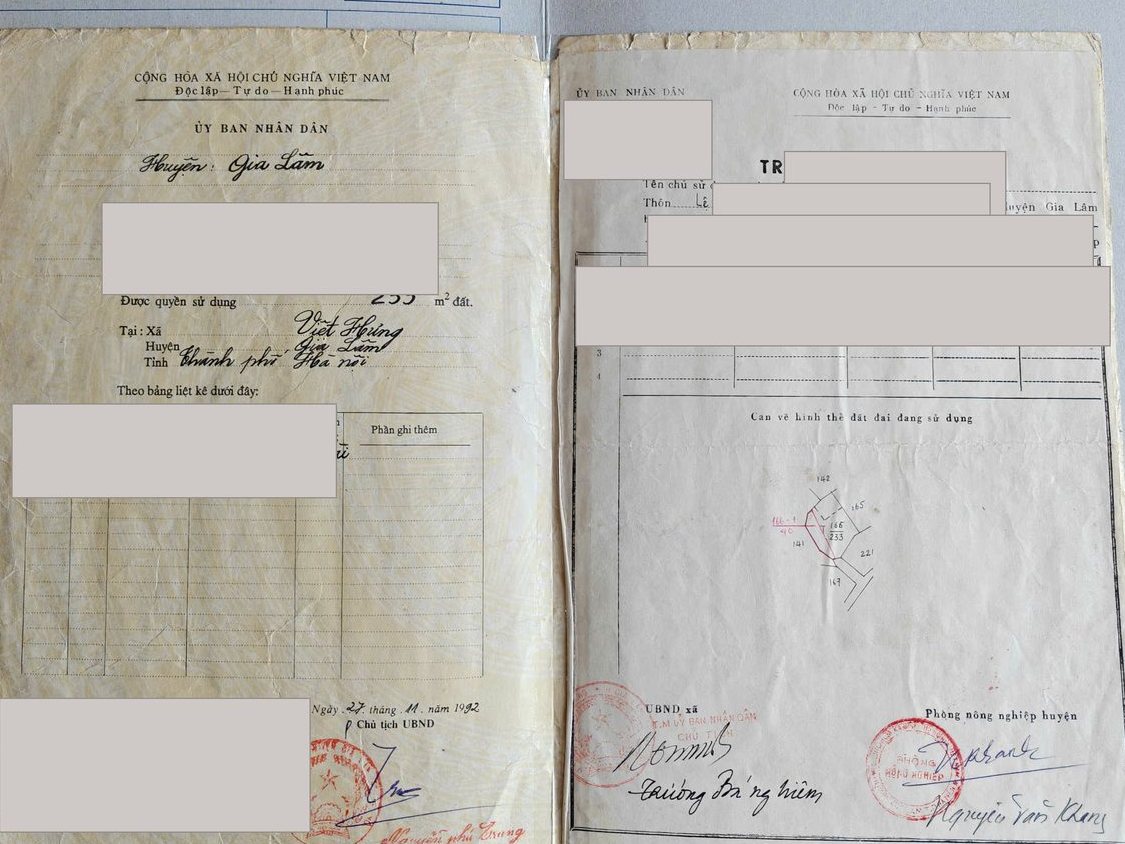 CỘNG HÒA XÃ HỘI CHỦ NGHĨA VIỆT NAM
Độc lập — Tự do — Hạnh phúc
ỦY BAN NHÂN DÂN
Huyện: Gia Lâm
Được quyền sử dụng 233 m² đất.
Tại : Xã Việt Hưng
Huyện Gia Lâm
Tỉnh Thành phố Hà nội
Theo bảng liệt kê dưới đây:
Phần ghi thêm
Ngày 27 tháng 11 năm 1992
Chủ tịch UBND
Nguyễn phú Trung
ỦY BAN NHÂN DÂN
CỘNG HÒA XÃ HỘI CHỦ NGHĨA VIỆT NAM
Độc lập - Tự do - Hạnh phúc
TR
Tên chủ sử
Thôn Lê
Huyện Gia Lâm
3
4
Can vẽ hình thể đất đai đang sử dụng
142
165
166-1
40
166
233
141
221
167
UBND xã
T.M ỦY BAN NHÂN DÂN
CHỦ TỊCH
Trương Bá nghiêm
Phòng nông nghiệp huyện
PHÒNG
NÔNG NGHIỆP
Nguyễn Văn Khang